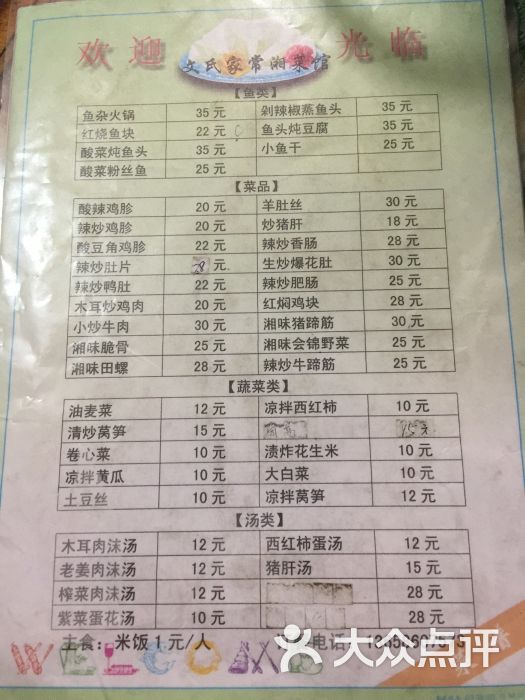 欢迎 光临
文氏家常湘菜馆
【鱼类】
鱼杂火锅 35 元 剁辣椒蒸鱼头 35 元
红烧鱼块 22 元 鱼头炖豆腐 35 元
酸菜炖鱼头 35 元 小鱼干 25 元
酸菜粉丝鱼 25 元
【菜品】
酸辣鸡胗 20 元 羊肚丝 30 元
辣炒鸡胗 20 元 炒猪肝 18 元
酸豆角鸡胗 22 元 辣炒香肠 28 元
辣炒肚片 28 元 生炒爆花肚 30 元
辣炒鸭肚 22 元 辣炒肥肠 25 元
木耳炒鸡肉 20 元 红焖鸡块 28 元
小炒牛肉 30 元 湘味猪蹄筋 25 元
湘味脆骨 25 元 湘味会锦野菜 25 元
湘味田螺 28 元 辣炒牛蹄筋 25 元
【蔬菜类】
油麦菜 12 元 凉拌西红柿 10 元
清炒莴笋 15 元 15元
卷心菜 10 元 渍炸花生米 10 元
凉拌黄瓜 10 元 大白菜 10 元
土豆丝 10 元 凉拌莴笋 12 元
【汤类】
木耳肉沫汤 12 元 西红柿蛋汤 12 元
老姜肉沫汤 12 元 猪肝汤 15 元
榨菜肉沫汤 12 元 28 元
紫菜蛋花汤 10 元 28 元
主食：米饭 1 元/人 电话
WELCO
大众点评